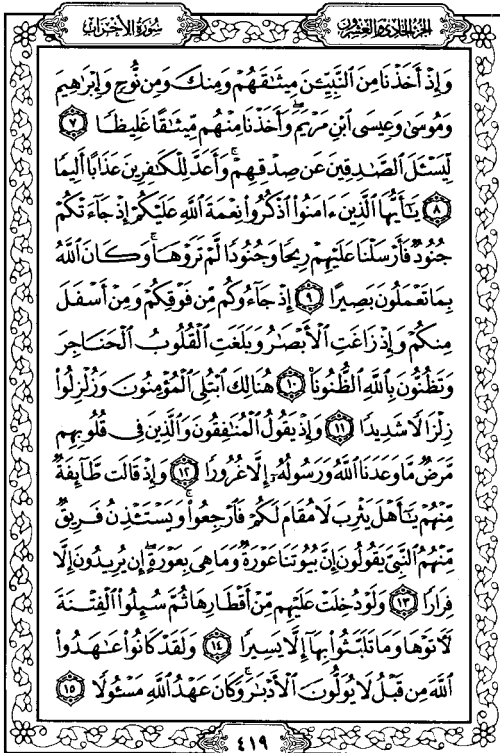 الجزء الحادي والعشرون
سورة الأحزاب
وَإِذْ أَخَذْنَا مِنَ ٱلنَّبِيِّـۧنَ مِيثَـٰقَهُمْ وَمِنكَ وَمِن نُّوحٍ وَإِبْرَٰهِيمَ
وَمُوسَىٰ وَعِيسَى ٱبْنِ مَرْيَمَ ۖ وَأَخَذْنَا مِنْهُم مِّيثَـٰقًا غَلِيظًا ٧
لِّيَسْـَٔلَ ٱلصَّـٰدِقِينَ عَن صِدْقِهِمْ ۚ وَأَعَدَّ لِلْكَـٰفِرِينَ عَذَابًا أَلِيمًا
٨ يَـٰٓأَيُّهَا ٱلَّذِينَ ءَامَنُوا۟ ٱذْكُرُوا۟ نِعْمَةَ ٱللَّهِ عَلَيْكُمْ إِذْ جَآءَتْكُمْ
جُنُودٌ فَأَرْسَلْنَا عَلَيْهِمْ رِيحًا وَجُنُودًا لَّمْ تَرَوْهَا ۚ وَكَانَ ٱللَّهُ
بِمَا تَعْمَلُونَ بَصِيرًا ٩ إِذْ جَآءُوكُم مِّن فَوْقِكُمْ وَمِنْ أَسْفَلَ
مِنكُمْ وَإِذْ زَاغَتِ ٱلْأَبْصَـٰرُ وَبَلَغَتِ ٱلْقُلُوبُ ٱلْحَنَاجِرَ
وَتَظُنُّونَ بِٱللَّهِ ٱلظُّنُونَا۠ ١٠ هُنَالِكَ ٱبْتُلِىَ ٱلْمُؤْمِنُونَ وَزُلْزِلُوا۟
زِلْزَالًا شَدِيدًا ١١ وَإِذْ يَقُولُ ٱلْمُنَـٰفِقُونَ وَٱلَّذِينَ فِى قُلُوبِهِم
مَّرَضٌ مَّا وَعَدَنَا ٱللَّهُ وَرَسُولُهُۥٓ إِلَّا غُرُورًا ١٢ وَإِذْ قَالَت طَّآئِفَةٌ
مِّنْهُمْ يَـٰٓأَهْلَ يَثْرِبَ لَا مُقَامَ لَكُمْ فَٱرْجِعُوا۟ ۚ وَيَسْتَـْٔذِنُ فَرِيقٌ
مِّنْهُمُ ٱلنَّبِىَّ يَقُولُونَ إِنَّ بُيُوتَنَا عَوْرَةٌ وَمَا هِىَ بِعَوْرَةٍ ۖ إِن يُرِيدُونَ إِلَّا
فِرَارًا ١٣ وَلَوْ دُخِلَتْ عَلَيْهِم مِّنْ أَقْطَارِهَا ثُمَّ سُئِلُوا۟ ٱلْفِتْنَةَ
لَـَٔاتَوْهَا وَمَا تَلَبَّثُوا۟ بِهَآ إِلَّا يَسِيرًا ١٤ وَلَقَدْ كَانُوا۟ عَـٰهَدُوا۟
ٱللَّهَ مِن قَبْلُ لَا يُوَلُّونَ ٱلْأَدْبَـٰرَ ۚ وَكَانَ عَهْدُ ٱللَّهِ مَسْـُٔولًا ١٥
٤١٩